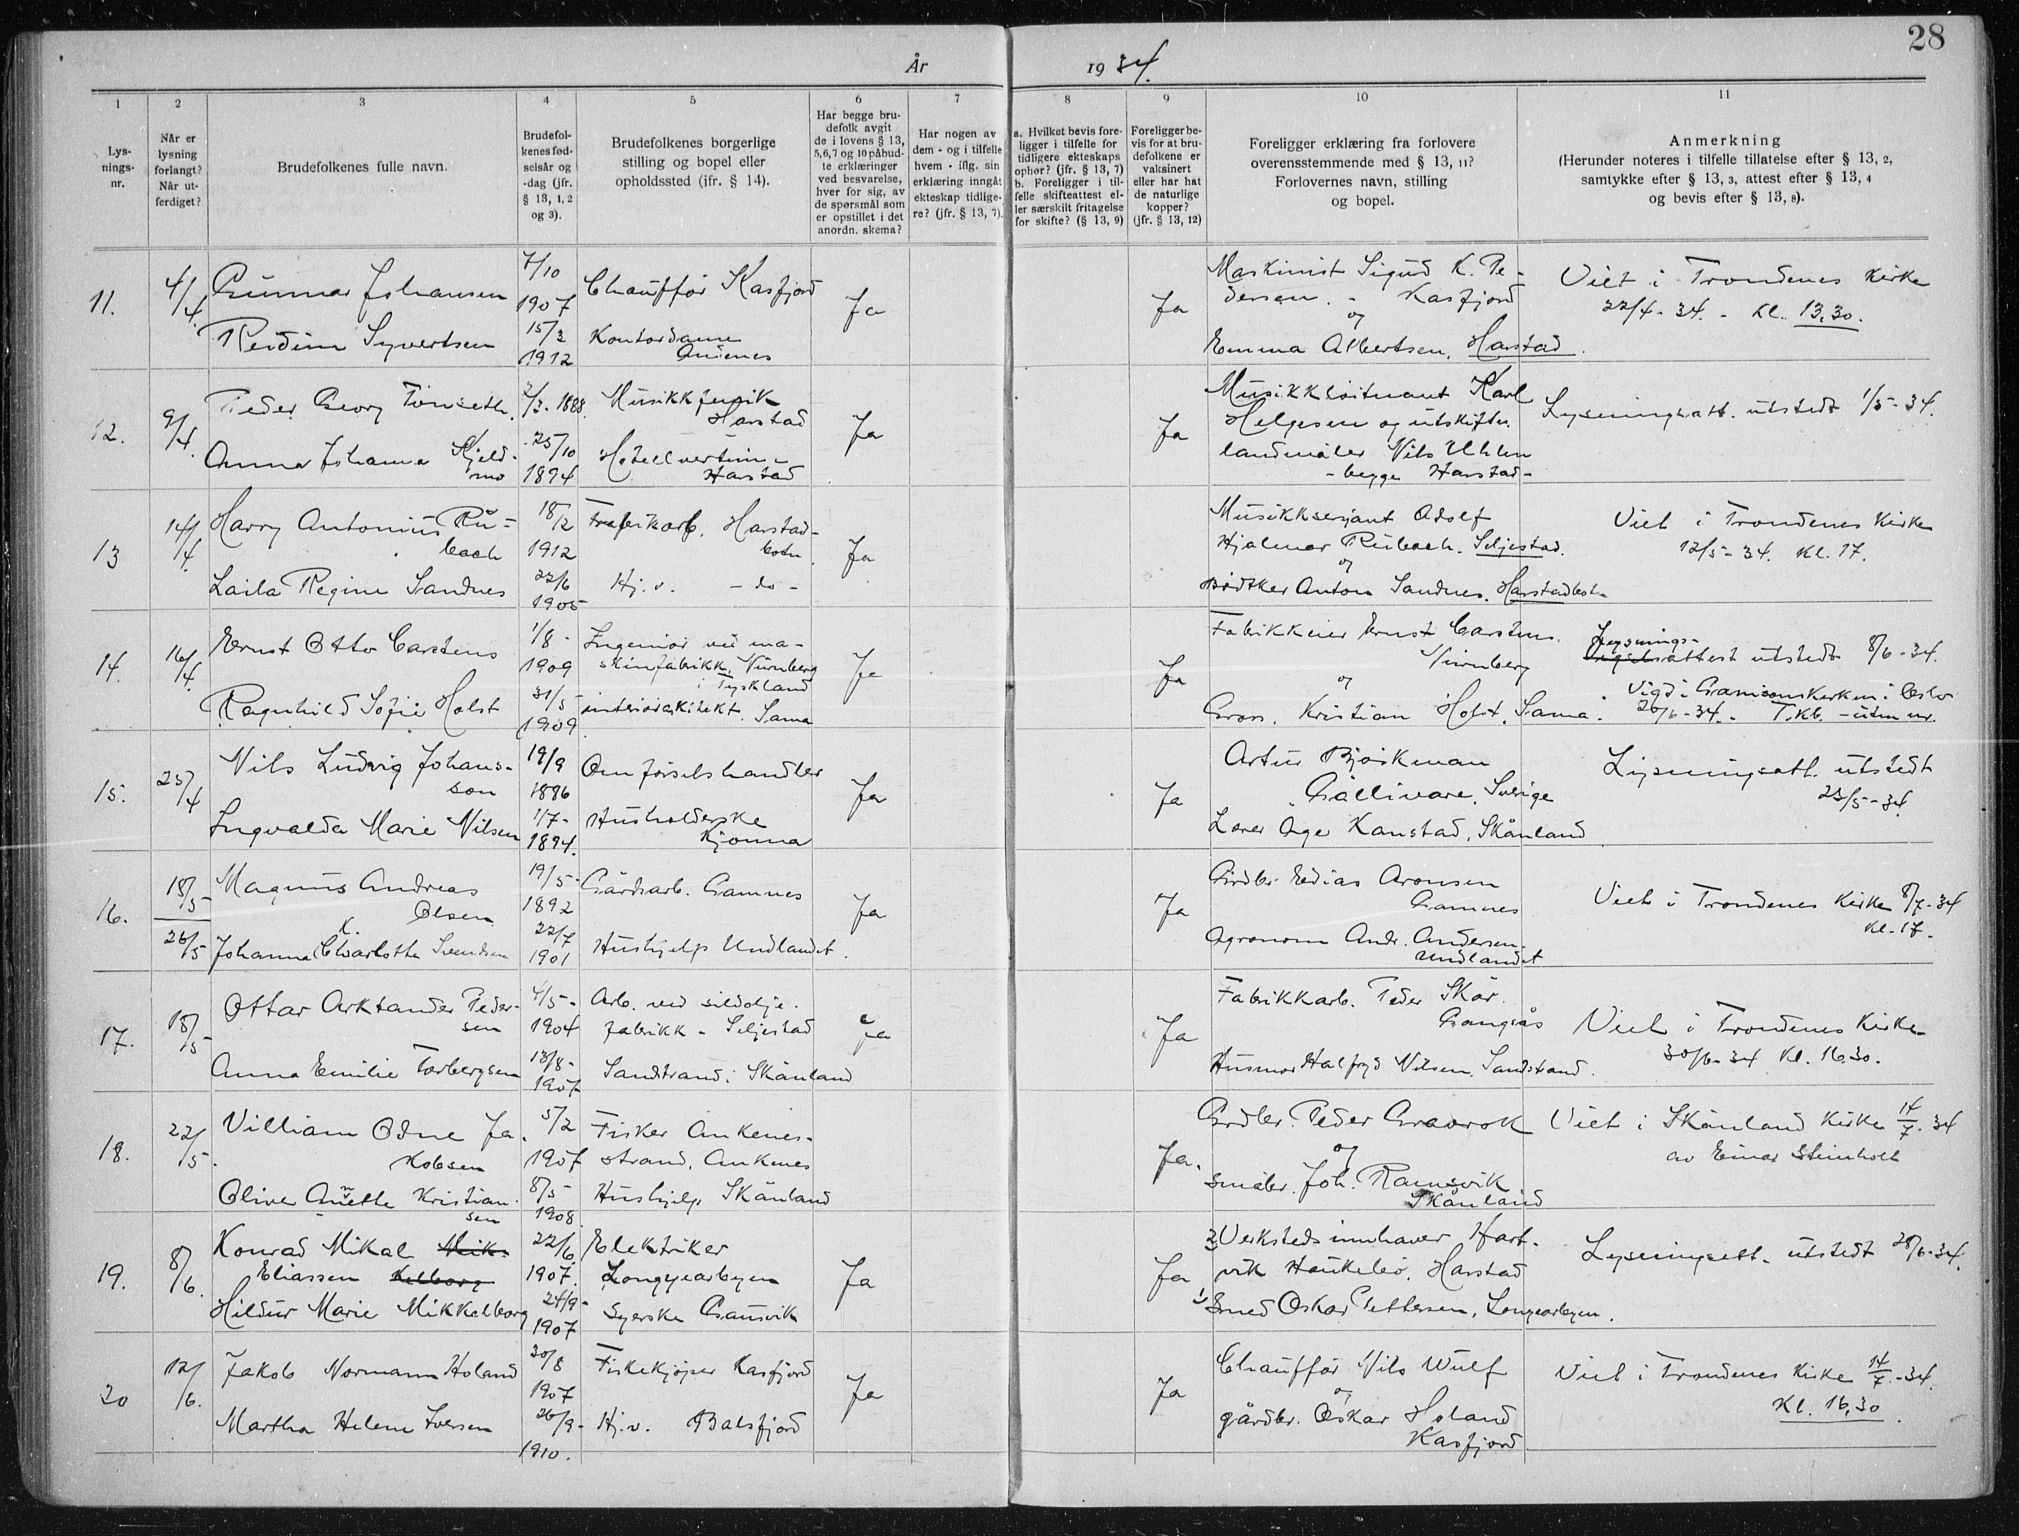 28
År 1934.
1 2 3 4 5 6 7 8 9 10 11
Lys-
nings-
nr.
Når er
lysning
forlangt?
Når ut-
ferdiget?
Brudefolkenes fulle navn.
Brudefol-
kenes fød-
selsår og
-dag (jfr.
§ 13, 1, 2
og 3).
Brudefolkenes borgerlige
stilling og bopel eller
opholdssted (jfr. § 14).
Har begge bru-
defolk avgit
de i lovens § 13,
5,6,7 og 10 påbud-
te erklæringer
ved besvarelse,
hver for sig, av
de spørsmål som
er opstillet i det
anordn. skema?
Har nogen av
dem - og i tilfelle
hvem - iflg. sin
erklæring inngåt
ekteskap tidlige-
re? (jfr. § 13, 7).
a. Hvilket bevis fore-
ligger i tilfelle for
tidligere ekteskaps
ophør? (jfr. § 13, 7)
b. Foreligger i til-
felle skifteattest el-
ler særskilt fritagelse
for skifte? (§ 13, 9)
Foreligger be-
vis for at bru-
defolkene er
vaksinert
eller har hat
de naturlige
kopper?
(jfr. § 13, 12)
Foreligger erklæring fra forlovere
overensstemmende med § 13, 11?
Forlovernes navn, stilling
og bopel.
Anmerkning
(Herunder noteres i tilfelle tillatelse efter § 13, 2,
samtykke efter § 13, 3, attest efter § 13, 4
og bevis efter § 13, 8).
11.
4/4.
Gunnar Johansen
7/10
1907
Chauffør Kasfjord
Reidun Syvertsen
15/3
1912
Kontordame
Andenes
Ja
Ja
Maskinist Sigurd K. Pe-
dersen. - Kasfjord
og
Emma Albertsen, Harstad.
Viet i Trondenes Kirke
22/4-34. - Kl. 13,30.
12.
9/4.
Peder Georg Tønseth.
2/3. 1888.
Musikkfenrik
Harstad
Anna Johanna Kjeld-
mo
25/10
1894
Hotellvertinne
Harstad
Ja
Ja
Musikkløitnant Karl
Helgesen og utskiftn.
landmåler Nils Uhlen
- begge Harstad -
Lysningsatt. utstedt 1/5-34.
13
14/4.
Harry Antonius Rü-
bach
18/2
1912
Trafikarb. Harstad-
botn
Laila Regine Sandnes
22/6
1905
Hj.v. - do -
Ja
Ja
Musikksersjant Adolf
Hjalmar Rübach. Seljestad.
og
Bødtker Anton Sandnes, Harstadbotn
Viet i Trondenes Kirke
12/5-34. Kl. 17.
14.
16/4.
Ernst Otto Carstens
1/8-
1909
Ingeniør ved ma-
skinfabrikk, Nürnberg
i Tyskland
Ragnhild Sofie Holst
31/5
1909
interiørarkitekt. Sama
Ja
Ja
Fabrikkeier Ernst Carstens.
Nürnberg
og
Gross. Kristian Holst, Sama.
Lysnings-
attest utstedt 8/6-34.
Vigd i Garnisonskirken i Oslo
26/6-34. - T.kb. - uten nr.
15.
25/4
Nils Ludvig Johans-
son
19/9
1886
Omførselshandler
Ingvalda Marie Nilsen
1/7-
1894.
Husholderske
Kjønna
Ja
Ja
Artur Bjørkman
Gällivare, Sverige
Lærer Åge Kanstad, Skånland
Lysningsatt. utstedt
23/5-34.
16.
18/5
26/5
Magnus Andreas
Olsen
19/5-
1892
Gårdsarb. Gamnes
Johanna K. Charlotte Svendsen
22/7
1901
Hushjelp Undlandet.
Ja
Ja
Grdbr. Edias Aronsen
Gamnes
Agronom Andr. Andersen.
Undlandet
Viet i Trondenes Kirke 8/7-34
Kl. 17.
17.
18/5
Ottar Arktander Peder-
sen
4/5-
1904
Arb. ved sildolje-
fabrikk - Seljestad
Anna Emilie Torbergsen
13/8-
1907
Sandstrand i Skånland
Ja
Ja
Fabrikkarb. Peder Skår.
Gangsås
Husmor Halfryd Nilsen, Sandstrand.
Viet i Trondenes Kirke
30/6-34 Kl. 16,30.
18.
22/5.
Villiam Odne Ja-
kobsen
5/2
1907
Fisker Ankenes-
strand, Ankenes
Olive Anette Kristian-
sen
8/5
1908
Hushjelp Skånland
Ja.
Grdbr. Peder Gravrok
og
småbr. Joh. Ramsvik
Skånland
Viet i Skånland Kirke 14/7-34
av Einar Steinholt
19.
8/6.
Konrad Mikal Mik-
Eliassen Kelborg
22/6
1907.
Elektriker
Longyearbyen
Hildur Marie Mikkelborg
24/9-
1907
Syerske Gausvik
Ja
Ja
2) Verkstedsinnhaver Hart-
vik Haukebø, Harstad
1) Smed Oskar Pettersen, Longearbyen.
Lysningsatt. utstedt 28/6-34.
20
12/6.
Jakob Normann Holand
30/8
1907
Fiskekjøper Kasfjord
Martha Helene Iversen
26/9-
1910.
Hj.v. Balsfjord
Ja
Ja
Chauffør Nils Wulf
og
gårdbr. Oskar Holand
Kasfjord
Viet i Trondenes Kirke 14/7-34.
Kl. 16,30.